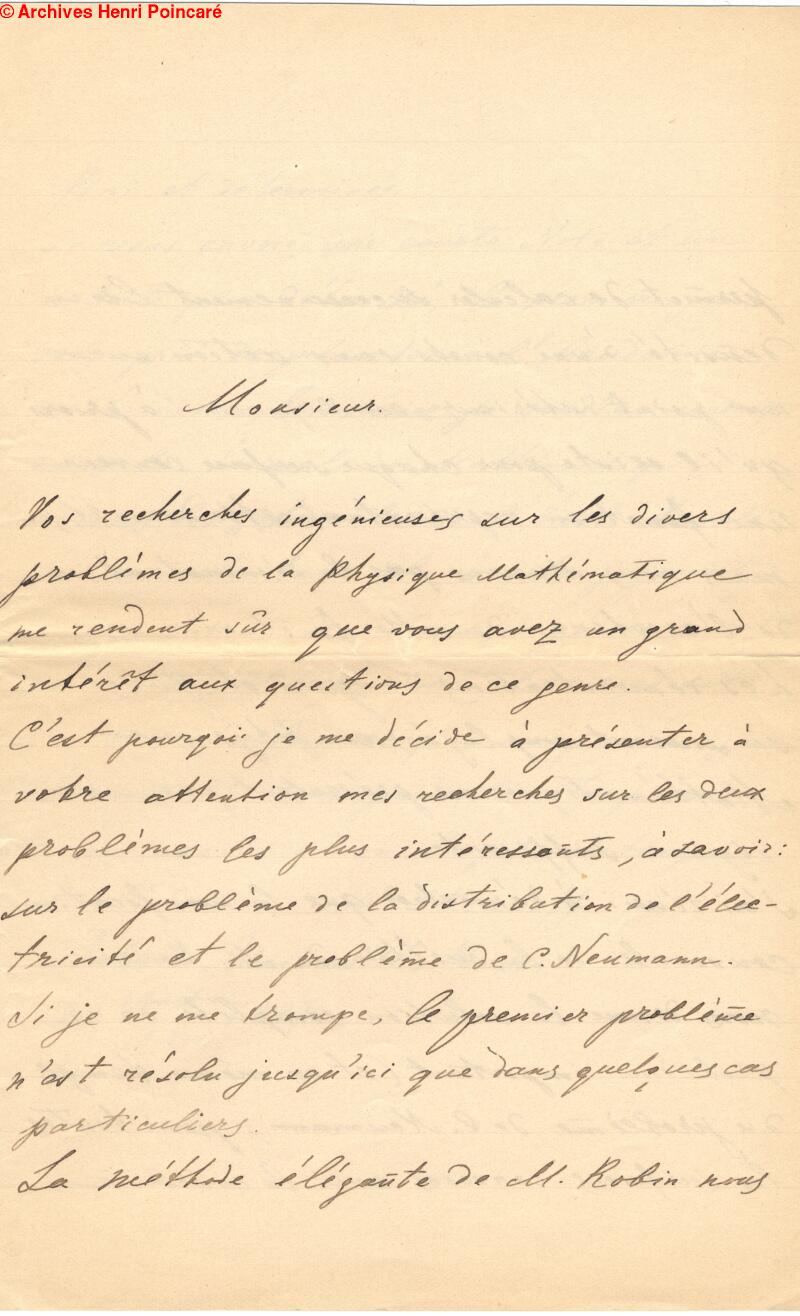 © Archives Henri Poincaré
Monsieur.
Vos recherches ingénieuses sur les divers
problèmes de la Physique Mathématique
me rendent sûr que vous avez un grand
intérêt aux questions de ce genre.
C'est pourquoi je me décide à présenter à
votre attention mes recherches sur les deux
problèmes les plus intéressants, à savoir:
sur le problème de la distribution de l'élec-
tricité et le problème de C. Neumann.
Si je ne me trompe, le premier problème
n'est résolu jusqu'ici que dans quelques cas
particuliers.
La méthode élégante de M. Robin nous